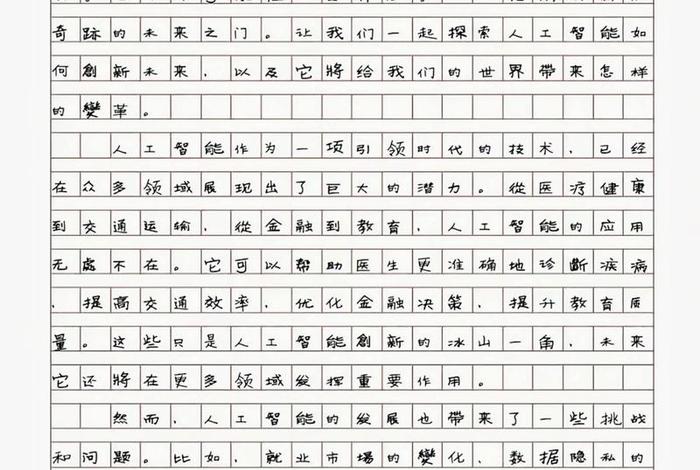 奇跡的未来之门。让我们一起探索人工智能如
何創新未来，以及它將给我们的世界帶来怎样
的變革。
人工智能作为一项引领时代的技术，已经
在众多领域展现出了巨大的潜力。從医疗健康
到交通运输，從金融到教育，人工智能的应用
无處不在。它可以帮助医生更准确地诊斷疾病
，提高交通效率，优化金融决策，提升教育质
量。这些只是人工智能創新的冰山一角，未来
它还將在更多领域发挥重要作用。
然而，人工智能的发展也帶来了一些挑战
和问题。比如，就业市場的變化，数据隐私的